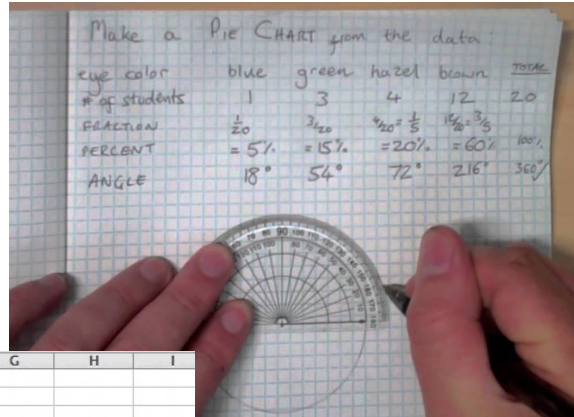 Make a PIE CHART from the data:
eye color blue green hazel brown TOTAL
# of students 1 3 4 12 20
FRACTION 1/20 3/20 4/20 = 1/5 12/20 = 3/5
PERCENT = 5% = 15% = 20% = 60% 100%
ANGLE 18° 54° 72° 216° 360°
G H I